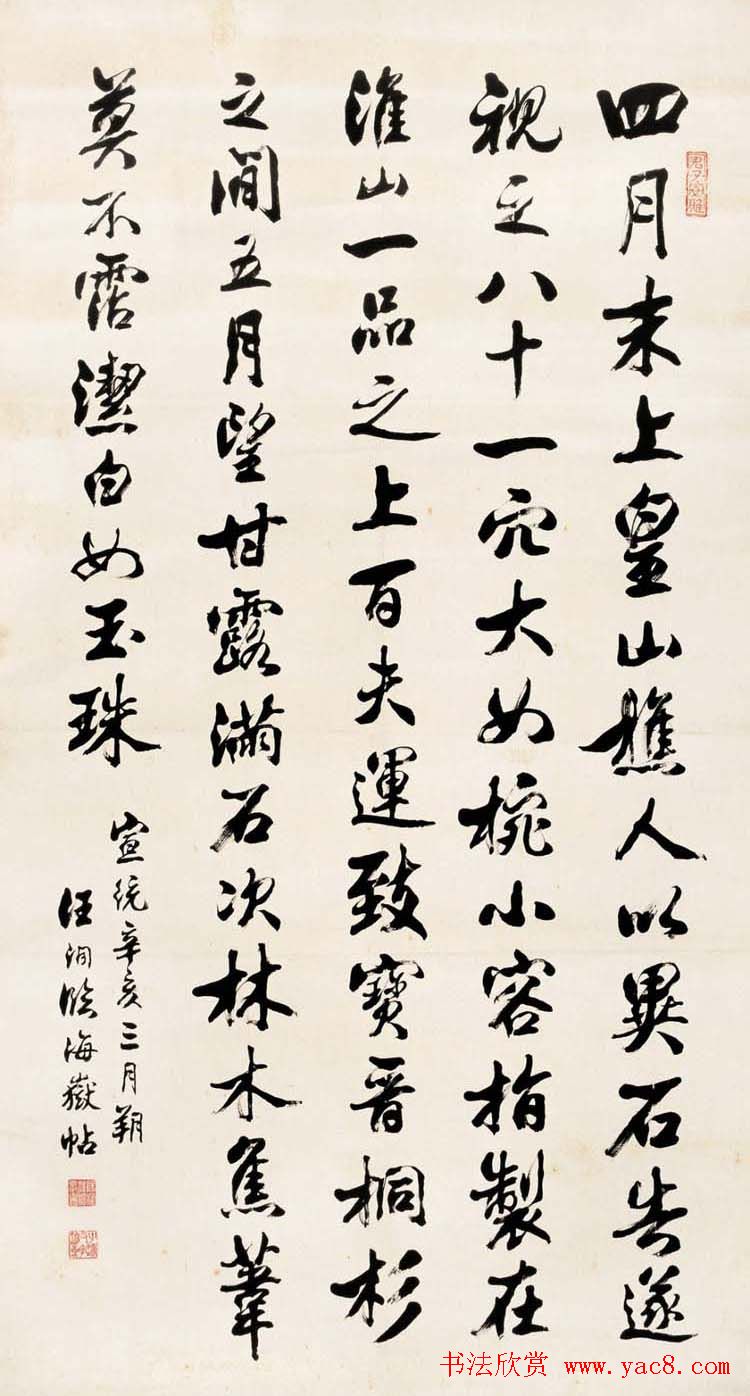 四月末上皇山樵人以異石告遂
視之八十一穴大如椀小容指製在
淮山一品之上百夫運致寶晉桐杉
之間五月望甘露滿石次林木焦葦
莫不霑潔白如玉珠
宣統辛亥三月朔
汪洵臨海嶽帖
书法欣赏 www.yac8.com